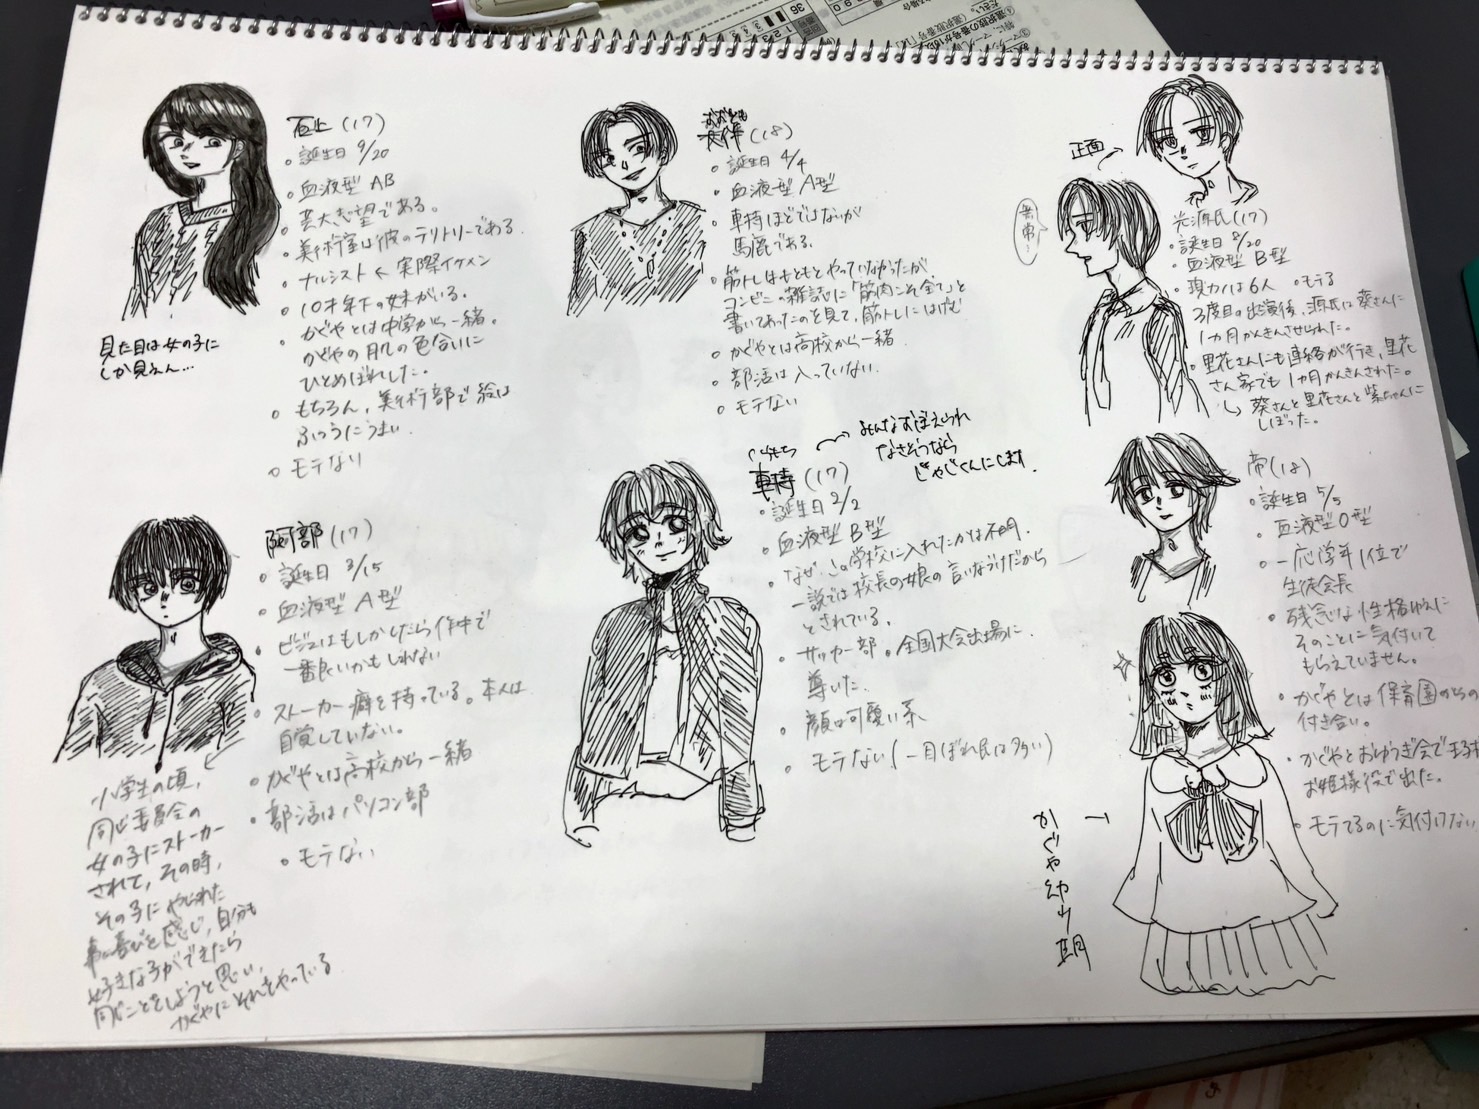 石上(17)
・誕生日 9/20
・血液型 AB
・芸大志望である。
・美術室は彼のテリトリーである.
・ナルシスト ← 実際イケメン
・10才年下の妹がいる。
かぐやとは中学から一緒。
かぐやの肌の色合いに
ひとめぼれした。
・もちろん、美術部で絵は
ふつうにうまい.
・モテない
見た目は女の子に
しか見えん…
阿部(17)
・誕生日 3/15
・血液型 A型
・ビジュはもしかしたら作中で
一番良いかもしれない
・ストーカー癖を持っている。本人は
自覚していない。
・かぐやとは高校から一緒
・部活はパソコン部
・モテない
小学生の頃,
同じ委員会の
女の子にストーカー
されて, その時,
その子にやられた
事に喜びを感じ, 自分も
好きな子ができたら
同じことをしようと思い,
かぐやにそれをやっている
おおとも
大伴(18)
・誕生日 4/4
・血液型 A型
・車持ほどではないが
馬鹿である.
・筋トレはもともとやっていなかったが
コンビニの雑誌に「筋肉こそ全て」と
書いてあったのを見て, 筋トレにはげむ
・かぐやとは高校から一緒
・部活は入っていない.
・モテない
くらもち
車持(17)
みんなおぼえられ
なさそうなら
じゃじくんにします.
・誕生日 2/2
・血液型 B型
・なぜ, この学校に入れたかは不明.
一説では校長の娘の言いなづけだから
とされている.
・サッカー部。全国大会出場に
導いた.
・顔は可愛い系
・モテない(一目ぼれ民は多い)
正面
光源氏(17)
・誕生日 8/20
・血液型 B型
・現カノは6人 ・モテる
3度目の出演後, 源氏は葵さんに
1カ月かんきんさせられた。
・里花さんにも連絡が行き, 里花
さん家でも1カ月かんきんされた。
↳ 葵さんと里花さんと紫ちゃんに
しぼった。
帝(18)
・誕生日 5/5
・血液型 O型
・一応学年1位で
生徒会長
・残念な性格ゆえに
そのことに気付いて
もらえていません。
・かぐやとは保育園からの
付き合い。
・かぐやとおゆうぎ会で王子
お姫様役で出た。
・モテてるのに気付けない
かぐや幼少期